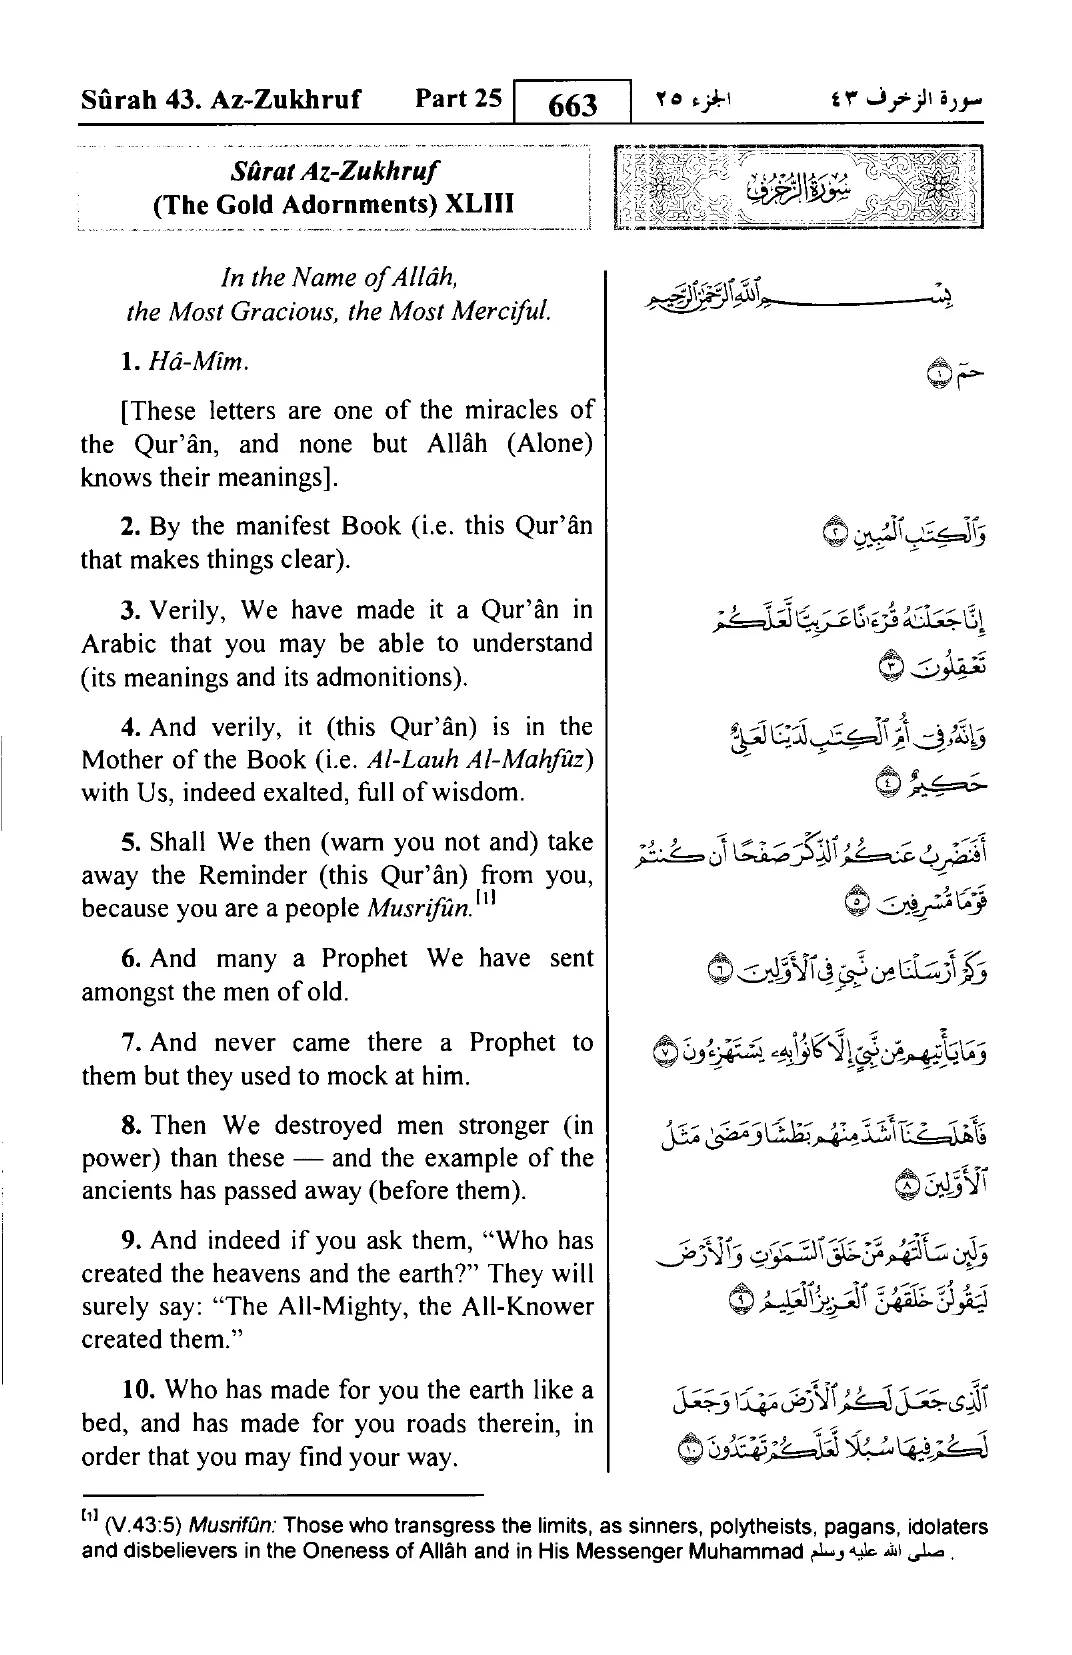 Sûrah 43. Az-Zukhruf Part 25 663 الجزء ٢٥ سورة الزخرف ٤٣
Sûrat Az-Zukhruf
(The Gold Adornments) XLIII
سُورَةُ الزُّخْرُفِ
In the Name of Allâh,
the Most Gracious, the Most Merciful.
1. Hâ-Mîm.
[These letters are one of the miracles of
the Qur’ân, and none but Allâh (Alone)
knows their meanings].
2. By the manifest Book (i.e. this Qur’ân
that makes things clear).
3. Verily, We have made it a Qur’ân in
Arabic that you may be able to understand
(its meanings and its admonitions).
4. And verily, it (this Qur’ân) is in the
Mother of the Book (i.e. Al-Lauh Al-Mahfûz)
with Us, indeed exalted, full of wisdom.
5. Shall We then (warn you not and) take
away the Reminder (this Qur’ân) from you,
because you are a people Musrifûn.[1]
6. And many a Prophet We have sent
amongst the men of old.
7. And never came there a Prophet to
them but they used to mock at him.
8. Then We destroyed men stronger (in
power) than these — and the example of the
ancients has passed away (before them).
9. And indeed if you ask them, “Who has
created the heavens and the earth?” They will
surely say: “The All-Mighty, the All-Knower
created them.”
10. Who has made for you the earth like a
bed, and has made for you roads therein, in
order that you may find your way.
بِسْمِ ٱللَّهِ ٱلرَّحْمَٰنِ ٱلرَّحِيمِ
حمٓ ١
وَٱلْكِتَٰبِ ٱلْمُبِينِ ٢
إِنَّا جَعَلْنَٰهُ قُرْءَٰنًا عَرَبِيًّا لَّعَلَّكُمْ
تَعْقِلُونَ ٣
وَإِنَّهُۥ فِىٓ أُمِّ ٱلْكِتَٰبِ لَدَيْنَا لَعَلِىٌّ
حَكِيمٌ ٤
أَفَنَضْرِبُ عَنكُمُ ٱلذِّكْرَ صَفْحًا أَن كُنتُمْ
قَوْمًا مُّسْرِفِينَ ٥
وَكَمْ أَرْسَلْنَا مِن نَّبِىٍّ فِى ٱلْأَوَّلِينَ ٦
وَمَا يَأْتِيهِم مِّن نَّبِىٍّ إِلَّا كَانُوا۟ بِهِۦ يَسْتَهْزِءُونَ ٧
فَأَهْلَكْنَآ أَشَدَّ مِنْهُم بَطْشًا وَمَضَىٰ مَثَلُ
ٱلْأَوَّلِينَ ٨
وَلَئِن سَأَلْتَهُم مَّنْ خَلَقَ ٱلسَّمَٰوَٰتِ وَٱلْأَرْضَ
لَيَقُولُنَّ خَلَقَهُنَّ ٱلْعَزِيزُ ٱلْعَلِيمُ ٩
ٱلَّذِى جَعَلَ لَكُمُ ٱلْأَرْضَ مَهْدًا وَجَعَلَ
لَكُمْ فِيهَا سُبُلًا لَّعَلَّكُمْ تَهْتَدُونَ ١٠
[1] (V.43:5) Musrifûn: Those who transgress the limits, as sinners, polytheists, pagans, idolaters
and disbelievers in the Oneness of Allâh and in His Messenger Muhammad صلى الله عليه وسلم .